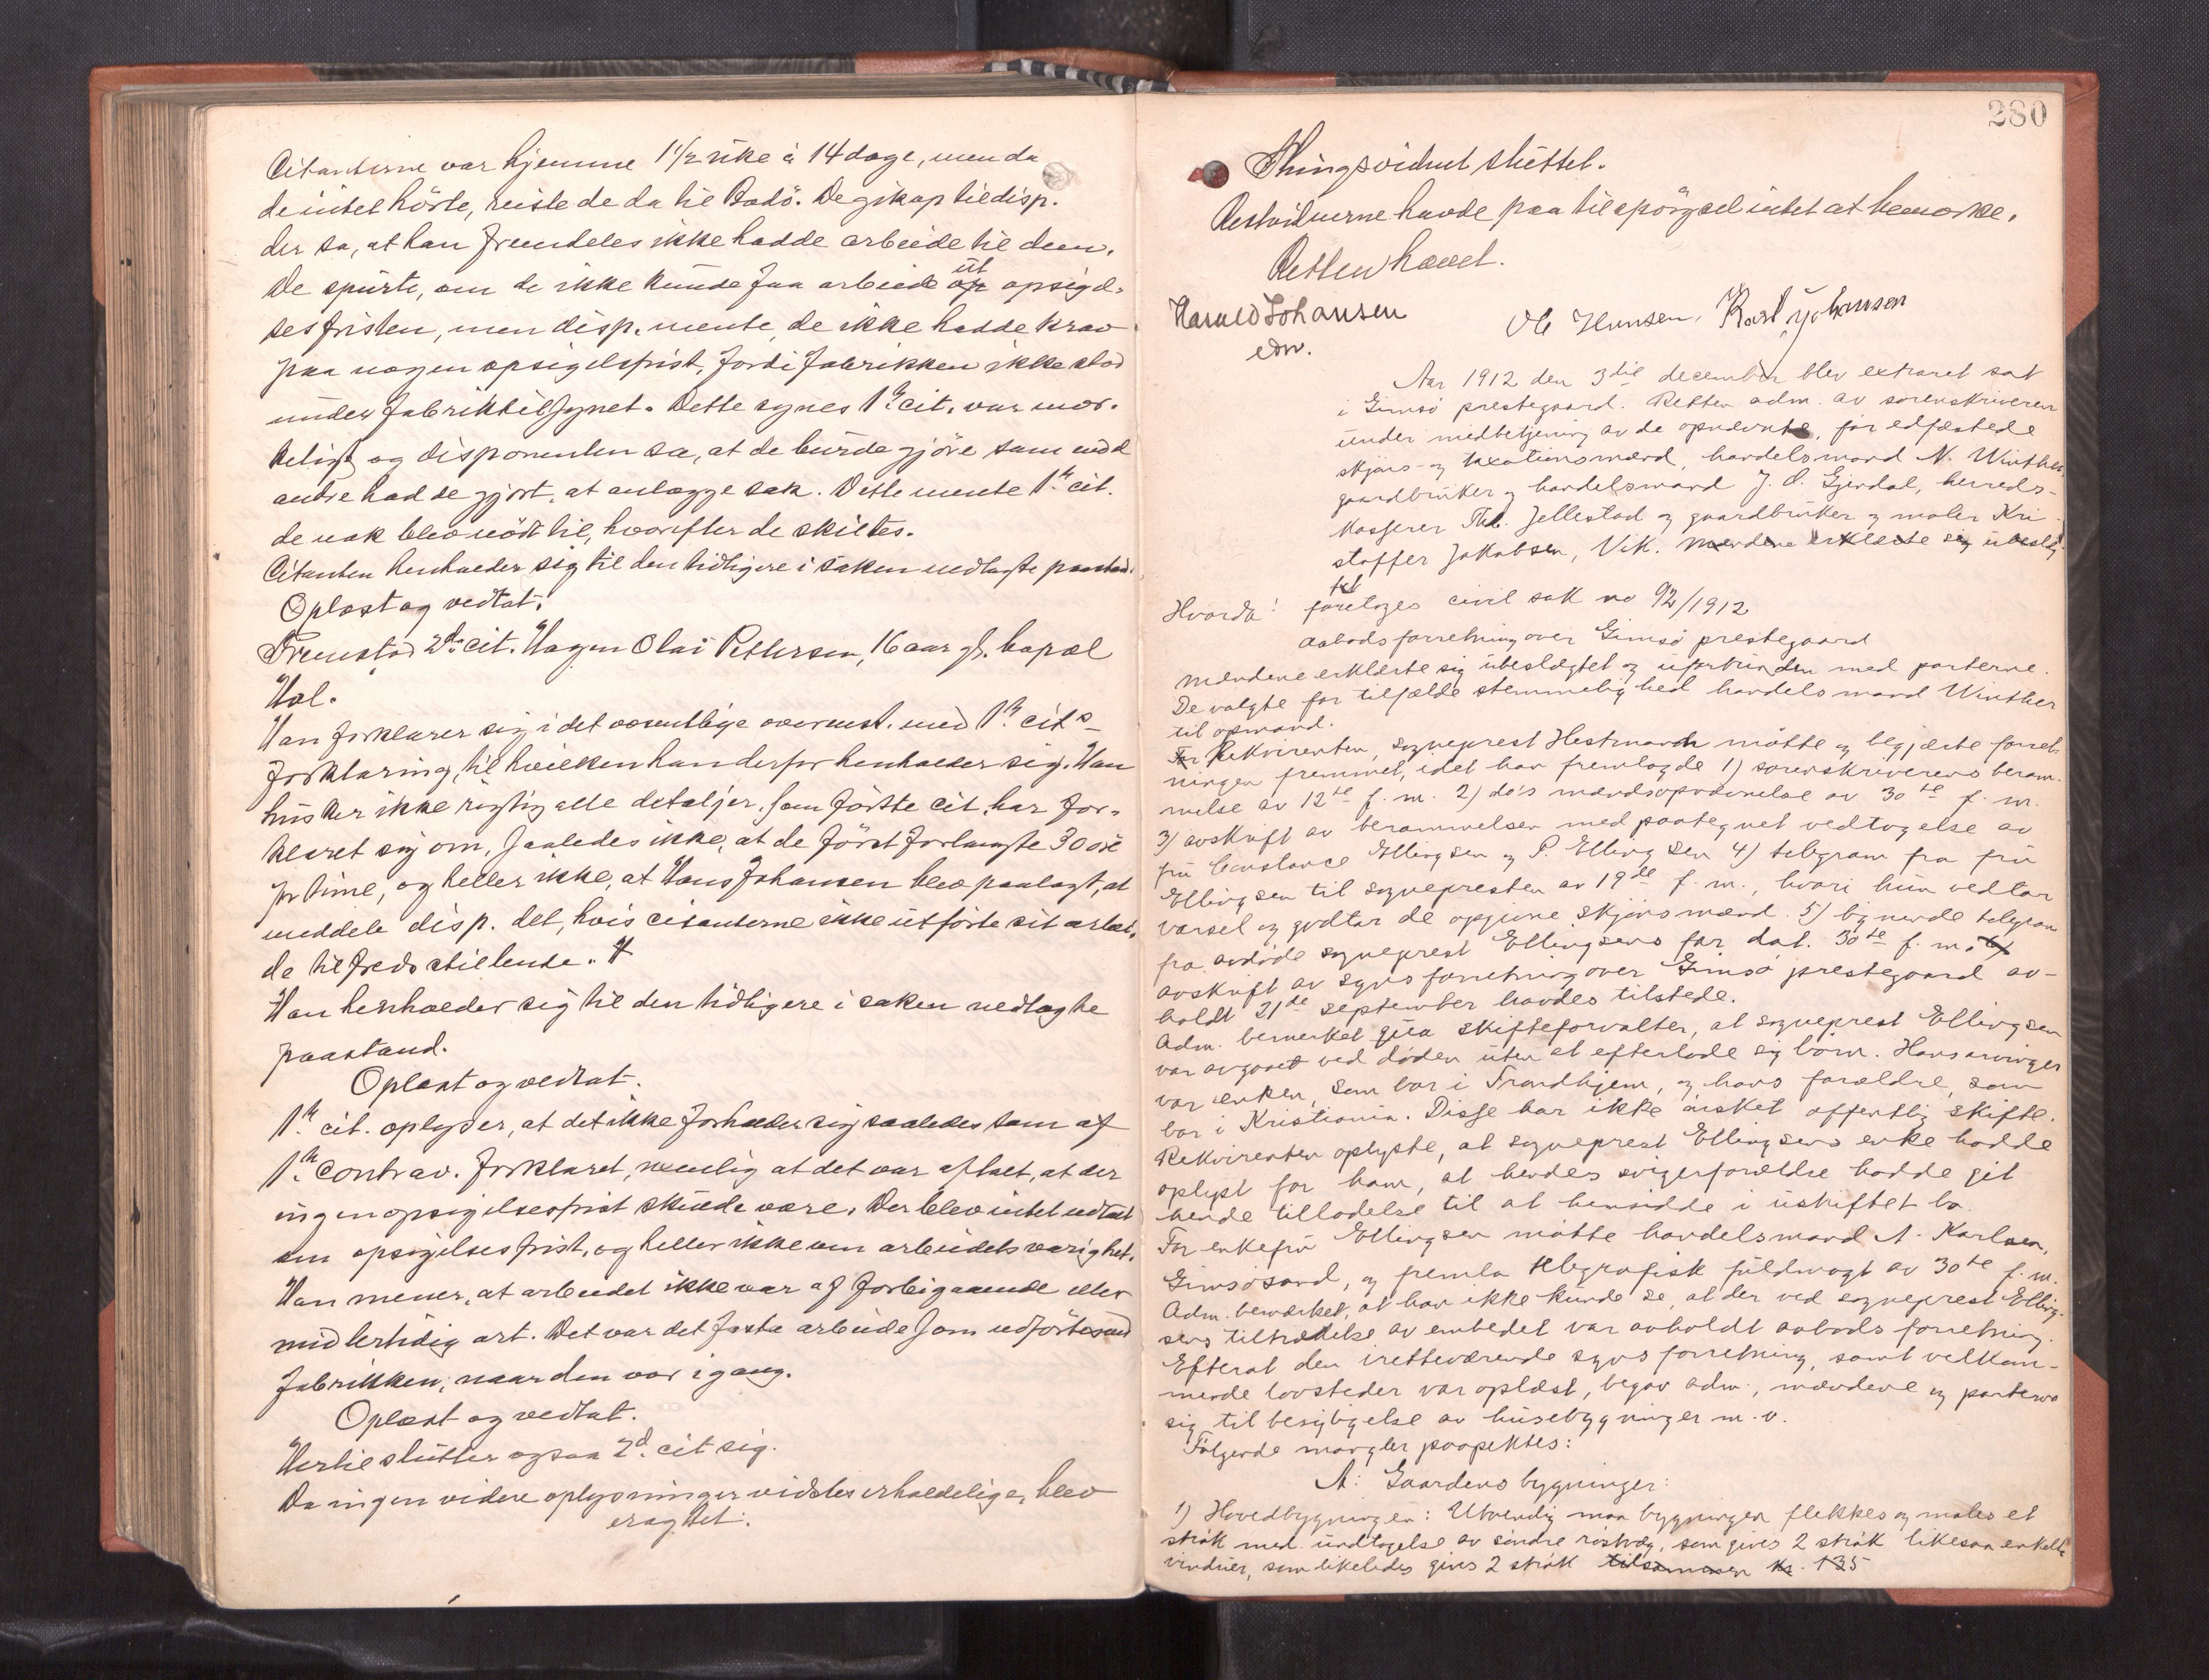 Citanterne var hjemme 1 1/2 uke à 14 dage, men da
de intet hörte, reiste de da til Bodö. De gik op til disp.
der sa, at han fremdeles ikke hadde arbeide til dem.
De spurte, om de ikke kunde faa arbeide ut opsigel-
sesfristen, men disp. mente, de ikke hadde krav
paa nogen opsigelsfrist, fordi fabrikken ikke stod
under fabriktilsynet. Dette synes 1ste cit. var mær-
kelig og disponenten sa, at de burde gjöre som
andre hadde gjort, at anlægge sak. Dette mente 1ste cit.
de nok blev nödt til, hvorefter de skiltes.
Citanten henholder sig til den tidligere i saken nedlagte paastand.
Oplæst og vedtat.
Fremstod 2den cit. Hagen Olai Pettersen, 16 aar gl. bopæl
Hol.
Han forklarer sig i det væsentlige overenst. med 1ste cits
forklaring, til hvilken han derfor henholder sig. Han
husker ikke rigtig alle detaljer, som förste cit. har for-
klaret sig om, saaledes ikke, at de först forlangte 30 öre
pr time, og heller ikke, at Hans Johansen blev paalagt, at
meddele disp. det, hvis citanterne ikke utförte sit arbei-
de tilfredsstillende.
Han henholder sig til den tidligere i saken nedlagte
paastand.
Oplæst og vedtat.
1ste cit. oplyser, at det ikke forholder sig saaledes som af
1ste contrav. forklaret, nemlig at det var aftalt, at der
ingen opsigelsesfrist skulde være. Der blev intet
om opsigelsesfrist, og heller ikke om arbeidets varighet.
Han mener, at arbeidet ikke var af forbigaaende eller
midlertidig art. Det var det faste arbeide som utförtes ved
fabrikken, naar den var igang.
Oplæst og vedtat.
Hertil slutter ogsaa 2d. cit sig.
Da ingen videre oplysninger vidstes erholdelige, blev
eragtet:
280
Thingsvidnet sluttet.
Retsvidnerne havde paa tilspörgsel intet at bemærke.
Retten hævet.
Harald Johansen
edv.
Ole Hansen. Karl Johansen
Aar 1912 den 3die december blev extraret sat
i Gimsö prestegaard. Retten adm. av sorenskriveren
under medbetjening av de opnævnte, för edfæstede
skjöns- og taxationsmænd, handelsmand N. Winther,
gaardbruker og handelsmand J. O. Gjerdal, herreds-
kasserer Jellestad og gaardbruker og maler Kri-
stoffer Jakobsen, Vik. Mændene erklærte sig ubeslæg-
tet
Hvorda: foretoges civil sak no 92/1912
aabodsforretning over Gimsö prestegaard
Mændene erklærte sig ubeslægtet og uforbunden med parterne.
De valgte for tilfælde stemmelighed handelsmand Winther
til opmand.
For Rekvirenten, sogneprest Hestmarck mötte og begjærte forret-
ningen fremmet, idet han fremlagde 1) sorenskriverens beram-
melse av 12te f. m. 2) do's mændsopnævnelse av 30te f. m.
3) avskrift av berammelsen med paategnet vedtagelse av
fru Constance Ellingsen og P. Ellingsen 4) telegram fra fru
Ellingsen til sognepresten av 19de f. m., hvori hun vedtar
varsel og godtar de opgivne skjönsmænd. 5) lignende telegram
fra avdöde sogneprest Ellingsens far dat. 30te f. m. 6)
avskrift av synsforretning over Gimsö prestegaard av-
holdt 21de september havdes tilstede.
Adm. bemerket qua skifteforvalter, at sogneprest Ellingsen
var avgaaet ved döden uten at efterlade sig barn. Hans arvinger
var enken, som bor i Trondhjem, og hans forældre, som
bor i Kristiania. Disse har ikke önsket offentlig skifte.
Rekvirenten oplyste, at sogneprest Ellingsens enke hadde
oplyst for ham, at hendes svigerforældre hadde git
hende tilladelse til at hensidde i uskiftet bo.
For enkefru Ellingsen mötte handelsmand A. Karlsen,
Gimsösand, og fremla telegrafisk fuldmagt av 30te f. m.
Adm. bemærket, at han ikke kunde se, at der ved sogneprest Elling-
sens tiltrædelse av embedet var avholdt aabodsforretning.
Efterat den iretteværende synsforretning, samt vedkom-
mende lovsteder var oplæst, begav adm., mændene og parterne
sig til besigtigelse av husebygninger m. v.
Fölgende mangler paapektes:
A: Gaardens bygninger:
1) Hovedbygningen: Utvendig maa bygningen flekkes og males et
strök med undtagelse av söndre röstvæg, som gives 2 strök likesaa enkelte
vinduer, som likeledes gives 2 strök tilsammen kr. 135